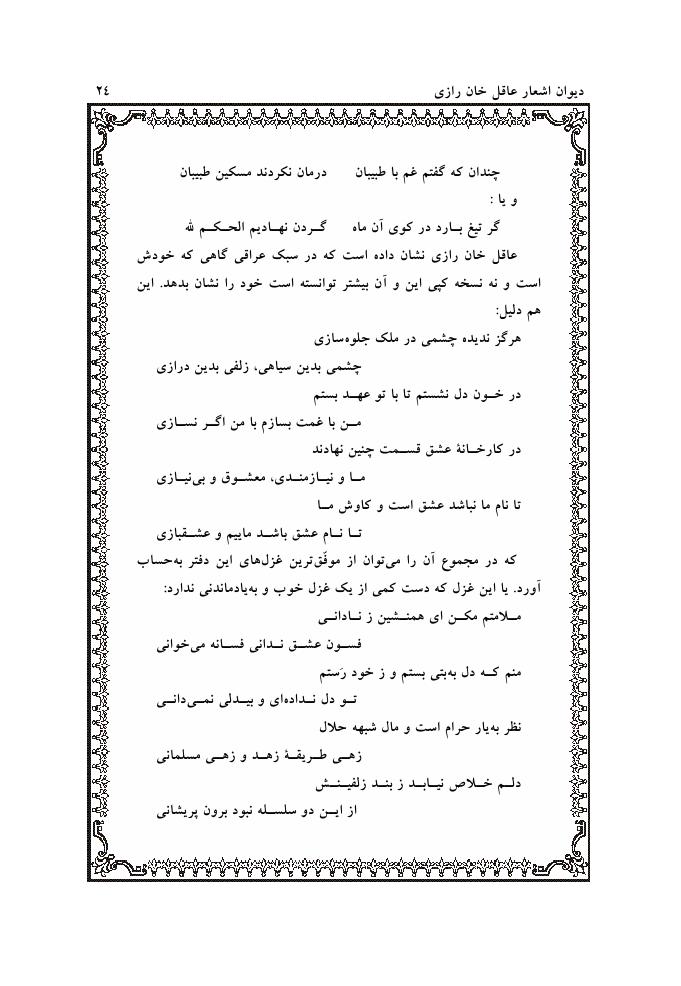 دیوان اشعار عاقل خان رازی ۲٤
چندان که گفتم غم با طبیبان درمان نکردند مسکین طبیبان
و یا :
گر تیغ بـارد در کوی آن ماه گـردن نهـادیم الحـکـم لله
عاقل خان رازی نشان داده است که در سبک عراقی گاهی که خودش
است و نه نسخه کپی این و آن بیشتر توانسته است خود را نشان بدهد. این
هم دلیل:
هرگز ندیده چشمی در ملک جلوه‌سازی
چشمی بدین سیاهی، زلفی بدین درازی
در خـون دل نشستم تا با تو عهـد بستم
مـن با غمت بسازم با من اگـر نسـازی
در کارخـانهٔ عشق قسـمت چنین نهادند
مـا و نیـازمنـدی، معشـوق و بی‌نیـازی
تا نام ما نباشد عشق است و کاوش مـا
تـا نـام عشق باشـد ماییم و عشـقبازی
که در مجموع آن را می‌توان از موفّق‌ترین غزل‌های این دفتر به‌حساب
آورد. یا این غزل که دست کمی از یک غزل خوب و به‌یادماندنی ندارد:
مـلامتم مکـن ای همنـشین ز نـادانـی
فسـون عشـق نـدانی فسـانه می‌خوانی
منم کـه دل به‌بتی بستم و ز خود رَستم
تـو دل نـداده‌ای و بیـدلی نمـی‌دانـی
نظر به‌یار حرام است و مال شبهه حلال
زهـی طـریقـهٔ زهـد و زهـی مسلمانی
دلـم خـلاص نیـابـد ز بنـد زلفیـنـش
از ایـن دو سلسـله نبود برون پریشانی